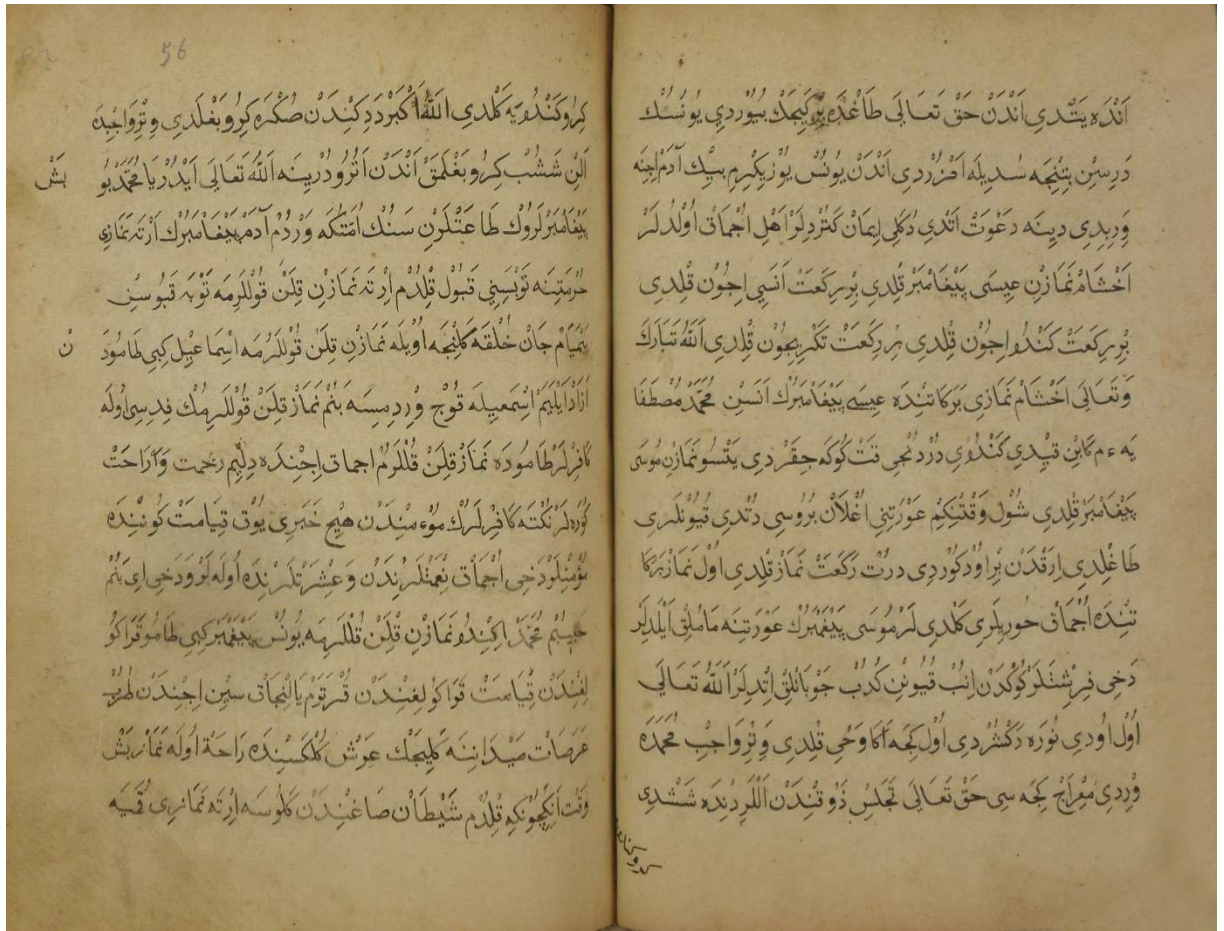 اَنْدَه يَتْدِى اَنْدَنْ حَقْ تَعَالَى طَاغْدَه بِرْ كَيِجَكْ بيُوُردِي يُونُسُكْ
دَرِسِيْن بِتِنْجَه سُدِيلَه اَفْزُرْدِى اَنْدَنْ يُونُسْ يُوزْ يِكِرْمِ بيِكْ آدَمْ اِچِنَه
وَرِبِدِى دِينَه دَعْوَتْ اَتْدِى دُكَلِى اِيمَانْ كَتُرْدِلَرْ اَهْلِ اُجْمَاقْ اُولْدُلَرْ
اَخْشَامْ نَمَازِنْ عِيسَى پَيْغَامْبَرْ قِلْدِى بِرْ رَكَعَتْ اَنَسِى اِجُونْ قِلْدِى
بِرْ رَكَعَتْ كَنْدُو اِجُونْ قِلْدِى بِرْ رَكَعَتْ تَكْرِيچُونْ قِلْدِى اَللّٰهُ تَبَارَكَ
وَتَعَالَى اَخْشَامْ نَمَازِى بَرَكَاتِنْدَه عِيسَى پَيْغَامْبَرُكْ اَنَسِنْ مُحَمَّدْ مُصْطَفَا
يَه ء م كَابِنْ قيِدِى كَنْدُوىِ دُرْدُنْجِى قَتْ كُوكَه چِقَرْدِى يَتْسُو نَمَازِنْ مُوسَى
پَيْغَامْبَرْ قِلْدِى شُولْ وَقْتْكِمْ عَوْرَتِنِى اُغْلَانْ بُرُوسِى دُتْدِى قيُونْلَرِى
طَاغِلْدِى اِرَقْدَنْ بِرْ اُودْ كُورْدِى دُرْتْ رَكَعَتْ نَمَازْ قِلْدِى اُولْ نَمَازْ بَرَكَا
تِنْدَه اُجْمَاقْ حُورِيلَرِى كَلْدِى لَرْ مُوسَى پَيْغَمْبَرُكْ عَوْرَتِنَه مَامْلِقْ اَيْلَدِلَرْ
دَخِى فِرِشْتَلَرْ كُوكْدَنْ اِنُبْ قيُونِنْ كُدُبْ چُوبَانْلِقْ اِتْدِلَرْ اَللّٰهُ تَعَالَى
اُولْ اُودِى نُورَه دَكْشُرْدِى اُولْ كِجَه اَكَا وَحْى قِلْدِى وِتْرُ وَاجِبْ مُحَمَّدَه
وِرْدِى مِعْرَاجْ كِجَه سِى حَقْ تَعَالَى تَجَلِسْ ذَوْقِنْدَنْ اَلْلَرِ دِنْدَه شَشْدِى
كروكندويه
56
كِرُو كَنْدُويَه كَلْدِى اَللّٰهُ اَكْبَرْ دَدِكِنْدَنْ صُكْرَه كِرُو بَغْلَدِى وِتْرُ وَاجِبَه
اَلِنْ شَشُبْ كِرُو بَغْلَمَقْ اَنْدَنْ اُتْرُودُرْ يِنَه اَللّٰهُ تَعَالَى اَيْدُرْ يَا مُحَمَّدْ بُو بَشْ
پَيْغَامْبَرْلَرُوكْ طَاعَتْلَرِنْ سَنُكْ اُمَّتُكَه وَرْدُمْ آدَمْ پَيْغَامْبَرُكْ اَرْتَه نَمَازِى
حُرْمَتِنَه تَوْبَسِينِى قَبُولْ قِلْدُمْ اِرْتَه نَمَازِنْ قِلَنْ قُولْلَرِمَه تَوْبَه قَبُوسِنْ
يَپْمَيَامْ جَانْ خُلْقَه كَلِنْجَه اُويْلَه نَمَازِنْ قِلَنْ قُولْلَرُمَه اِسْمَاعِيلْ كِبِى طَامُودَ نْ
اَزَادْ اَيْلَيَمْ اِسْمَعِيلَه قُوچْ وِرْدِمِسَه بَنُمْ نَمَازْ قِلَنْ قُولْلَرِمُكْ فِدِسِى اُولَه
كَافِرْلَرْ طَامُودَه نَمَازْ قِلَنْ قُلْلَرُمْ اجماق اِچِنْدَه دِلَيِمْ رحمت وَاَرَاحَتْ
كُورَه لَرْ نَكْتَه كَافِرْلَرُكْ مُؤمِنْدَنْ هِيچْ خَبَرِى يُوقْ قِيَامَتْ كُونِنْدَه
مُؤْمِنْلَرْ دَخِى اُجْمَاقْ نِعْمَتْلَرِنْدَنْ وَعِشْرَتْلَرِنْدَه اُولَه لَرْ وَدَخِى اِى بَنُمْ
حَبِيبُمْ مُحَمَّدْ اِكِنْدُو نَمَازِنْ قِلَنْ قُلْلَرِمَه يُونُسْ پَيْغَمْبَرْ كِبِى طَامُو قَرَاكُو
لِغِنْدَنْ قِيَامَتْ قَرَاكُولِغِنْدَنْ قُرْتَرَوُمْ يَالِنْجَاقْ سِيْنِ اِچِنْدَنْ طُرُبْ
عَرَصَاتْ مَيْدَانِنَه كَلِيجَكْ عَرْشْ كُلْكَسِنْدَه رَاحَة اُولَه نَمَازْ بَشْ
وَقْتْ اَنِكِچُونْكِه قِلْدُمْ شَيْطَانْ صَاغِنْدَنْ كَلُورْسَه اِرْتَه نَمَازِى قُميَه